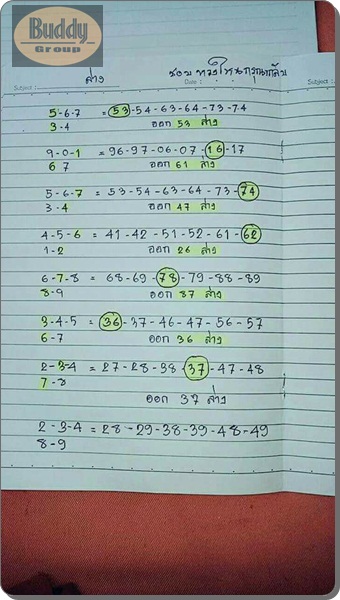 Buddy
Group
ล่าง ชอบทางไหนกรุณากลับ
Subject : Date : Subject :
5-6-7 = 53-54-63-64-73-74
3-4 ออก 53 ล่าง
9-0-1 = 96-97-06-07-16-17
6 7 ออก 61 ล่าง
5-6-7 = 53-54-63-64-73-74
3-4 ออก 47 ล่าง
4-5-6 = 41-42-51-52-61-62
1-2 ออก 26 ล่าง
6-7-8 = 68-69-78-79-88-89
8-9 ออก 87 ล่าง
3-4-5 = 36-37-46-47-56-57
6-7 ออก 36 ล่าง
2-3-4 = 27-28-38-37-47-48
7-8 ออก 37 ล่าง
2-3-4 = 28-29-38-39-48-49
8-9